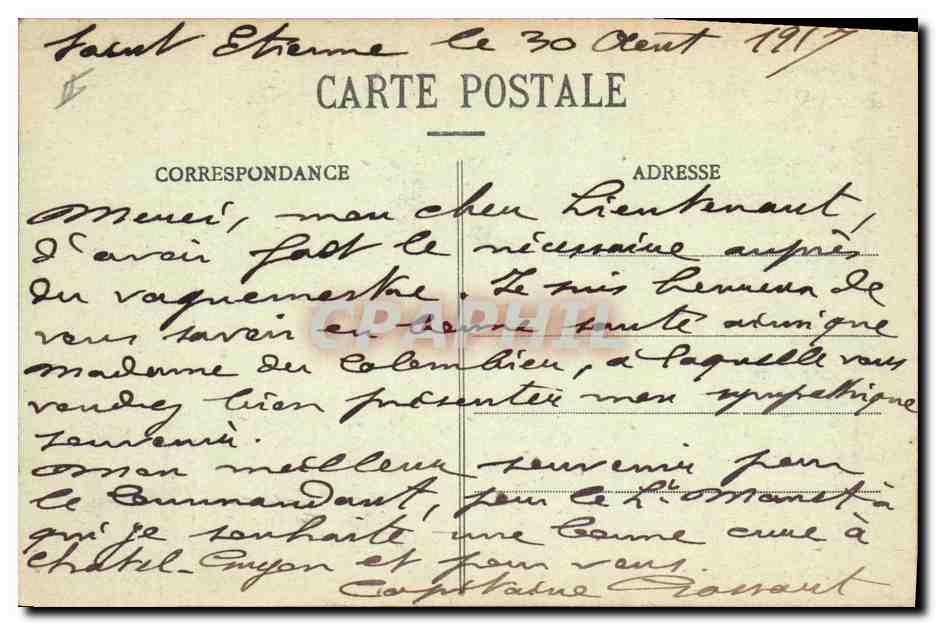 Saint Etienne le 30 Août 1917
CARTE POSTALE
CORRESPONDANCE
ADRESSE
Merci, mon cher Lieutenant,
d'avoir fait le nécessaire auprès
du vaguemestre. Je suis heureux de
vous savoir en bonne santé ainsi que
Madame du Colombier, à laquelle vous
voudrez bien présenter mon sympathique
souvenir.
Mon meilleur souvenir pour
le Commandant, pour le Lt à
qui je souhaite une bonne cure à
Chatel-Guyon et pour vous.
Capitaine
CPAPHIL